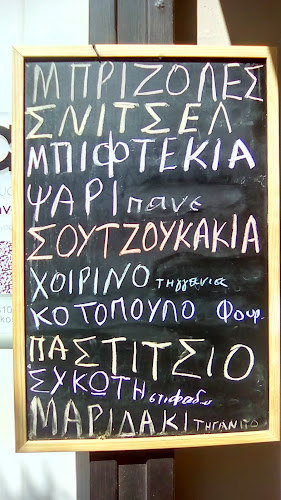 ΜΠΡΙΖΟΛΕΣ
ΣΝΙΤΣΕΛ
ΜΠΙΦΤΕΚΙΑ
ΨΑΡΙ πανε
ΣΟΥΤΖΟΥΚΑΚΙΑ
ΧΟΙΡΙΝΟ τηγγανια
ΚΟΤΟΠΟΥΛΟ Φουρ.
ΠΑΣΤΙΤΣΙΟ
ΣΥΚΩΤΗ στιφαδο
ΜΑΡΙΔΑΚΙ ΤΗΓΑΝΙΤΟ